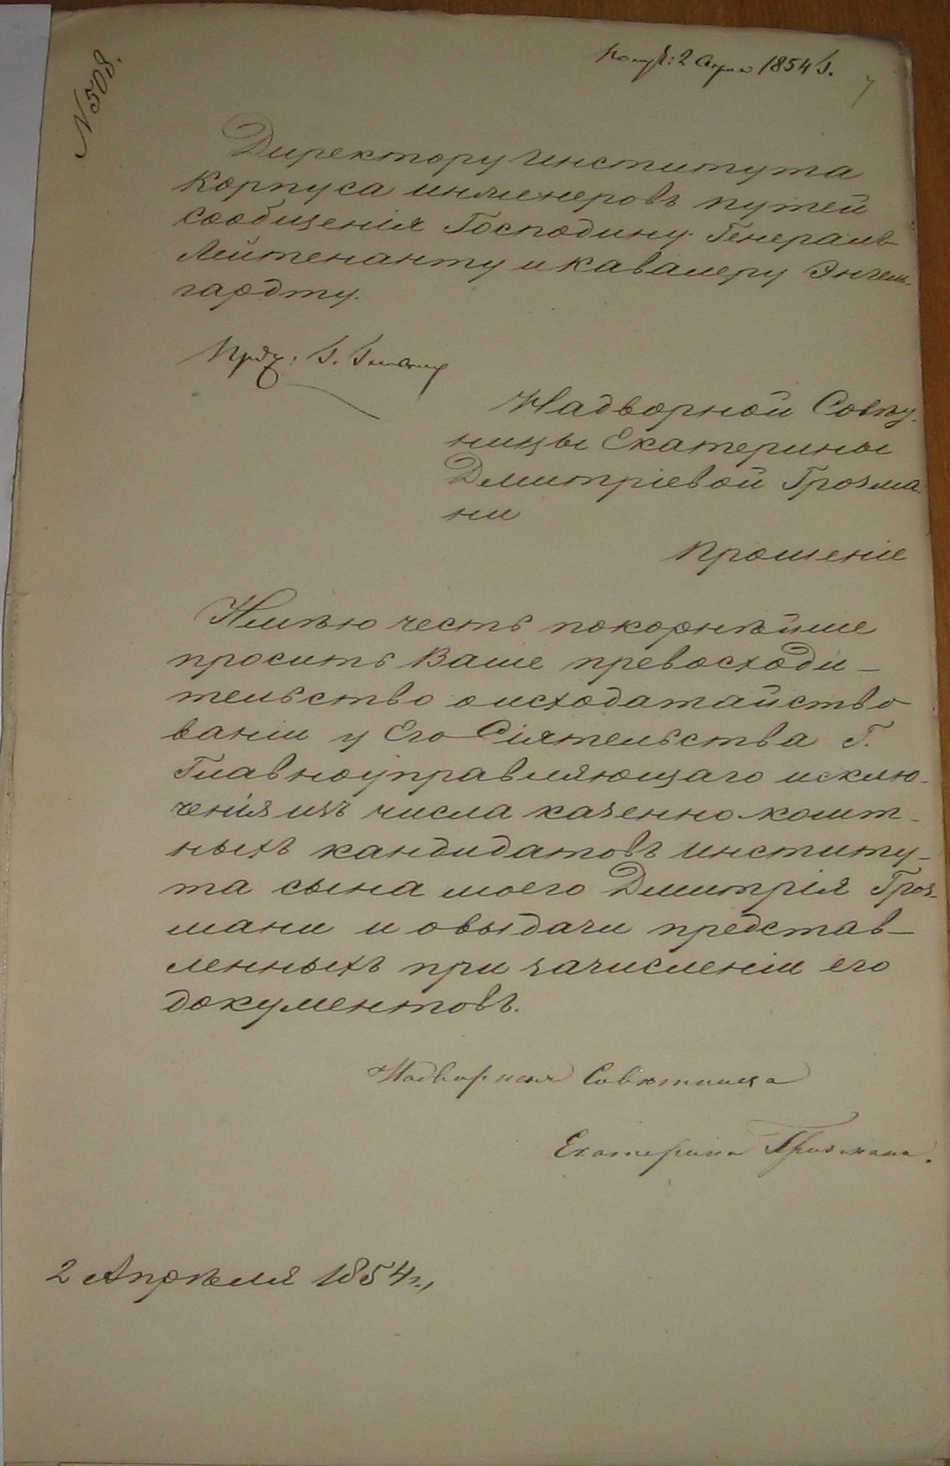 N 508.
Получ: 2 Апреля 1854 г.
7
Директору Института
Корпуса инженеровъ путей
сообщенія Господину Генералъ
Лейтенанту и Кавалеру Энгель-
гардту.
Надворной Совѣт-
ницы Екатерины
Дмитріевой Грозма
ни
Прошеніе
Имѣю честь покорнѣйше
просить Ваше превосходи-
тельство о исходатайство
ваніи у Его Сіятельства Г.
Главноуправляющаго исклю-
ченія изъ числа казеннокошт-
ныхъ кандидатовъ институ-
та сына моего Дмитрія Гроз-
мани и о выдачи представ-
ленныхъ при зачисленіи его
документовъ.
Надворная Совѣтница
Екатерина Грозмани.
2 Апрѣля 1854 г.,